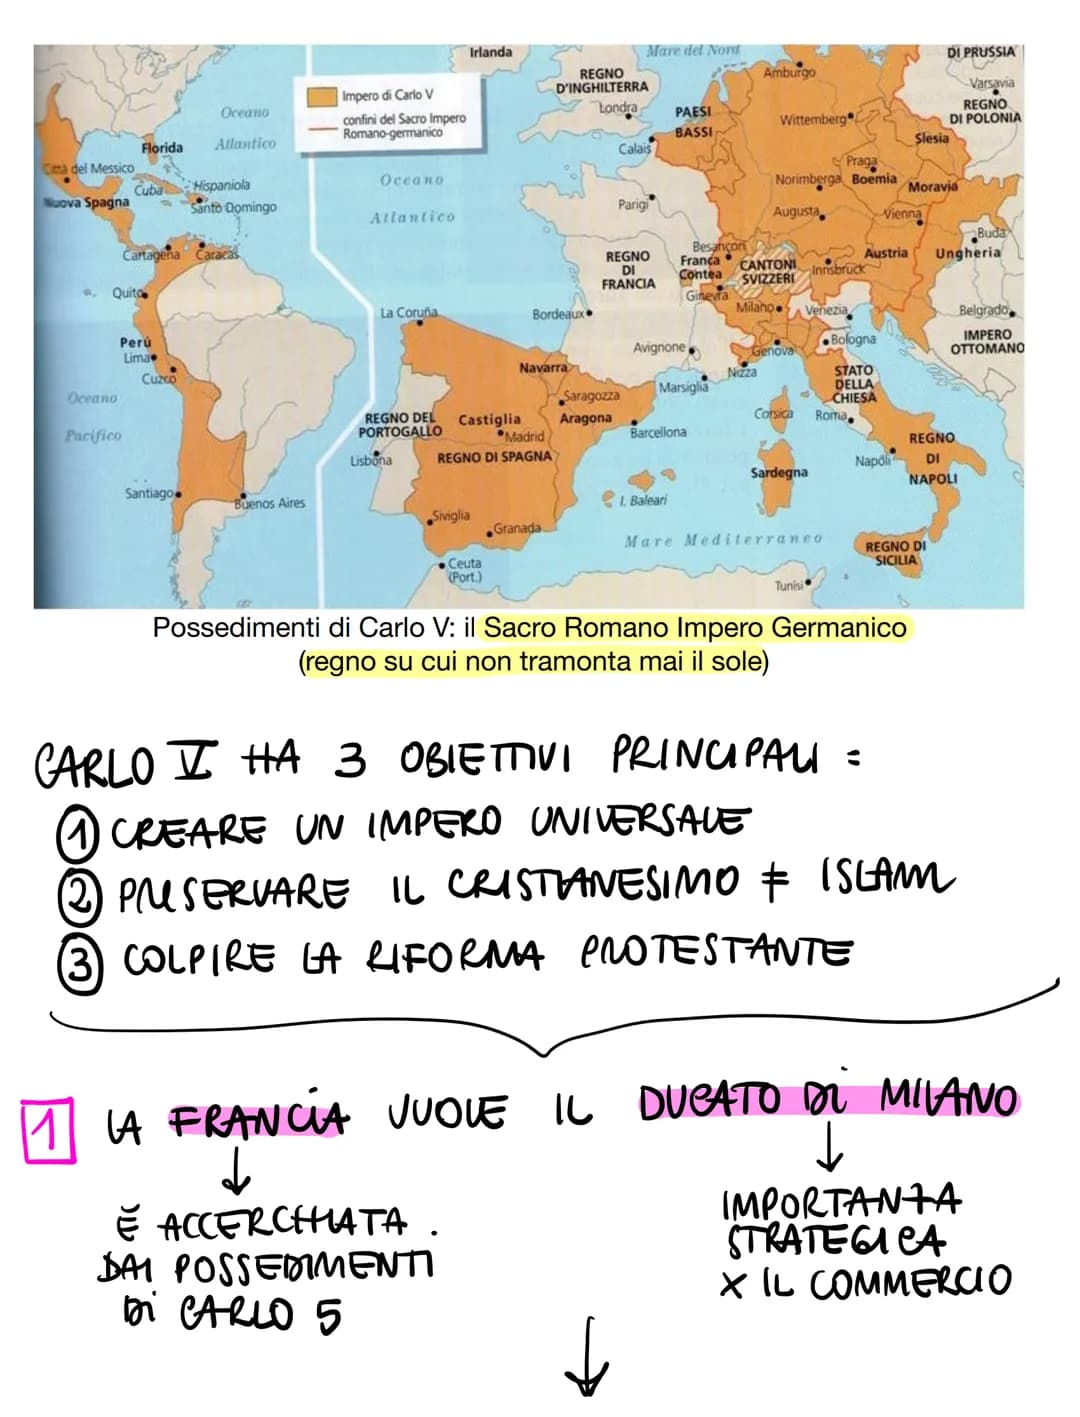 Irlanda
Mare del Nord
DI PRUSSIA
REGNO
D'INGHILTERRA
Londra
Amburgo
Varsavia
REGNO
DI POLONIA
Impero di Carlo V
confini del Sacro Impero
Romano-germanico
Oceano
Atlantico
PAESI
BASSI
Calais
Wittemberg
Slesia
Florida
Città del Messico
Cuba
Hispaniola
Nuova Spagna
Santo Domingo
Oceano
Atlantico
Parigi
Praga
Norimberga
Boemia
Moravia
Augusta
Vienna
Buda
Cartagena
Caracas
REGNO
DI
FRANCIA
Besançon
Franca
Contea
CANTONI
SVIZZERI
Innsbruck
Austria
Ungheria
Quito
Ginevra
Milano
Venezia
Belgrado
La Coruña
Bordeaux
Perú
Lima
Cuzco
Avignone
Genova
Bologna
IMPERO
OTTOMANO
Navarra
Nizza
Marsiglia
STATO
DELLA
CHIESA
Oceano
Pacifico
Saragozza
REGNO DEL
PORTOGALLO
Castiglia
Aragona
Madrid
Barcellona
Corsica
Roma
Lisbona
REGNO DI SPAGNA
Sardegna
Napoli
REGNO
DI
NAPOLI
Santiago
Buenos Aires
I. Baleari
Siviglia
Granada
Mare Mediterraneo
REGNO DI
SICILIA
Ceuta
(Port.)
Tunisi
Possedimenti di Carlo V: il Sacro Romano Impero Germanico
(regno su cui non tramonta mai il sole)
CARLO V HA 3 OBIETTIVI PRINCIPALI =
1 CREARE UN IMPERO UNIVERSALE
2 PRESERVARE IL CRISTIANESIMO ≠ ISLAM
3 COLPIRE LA RIFORMA PROTESTANTE
1 LA FRANCIA VUOLE IL DUCATO DI MILANO
È ACCERCHIATA.
DAI POSSEDIMENTI
DI CARLO 5
IMPORTANZA
STRATEGICA
X IL COMMERCIO